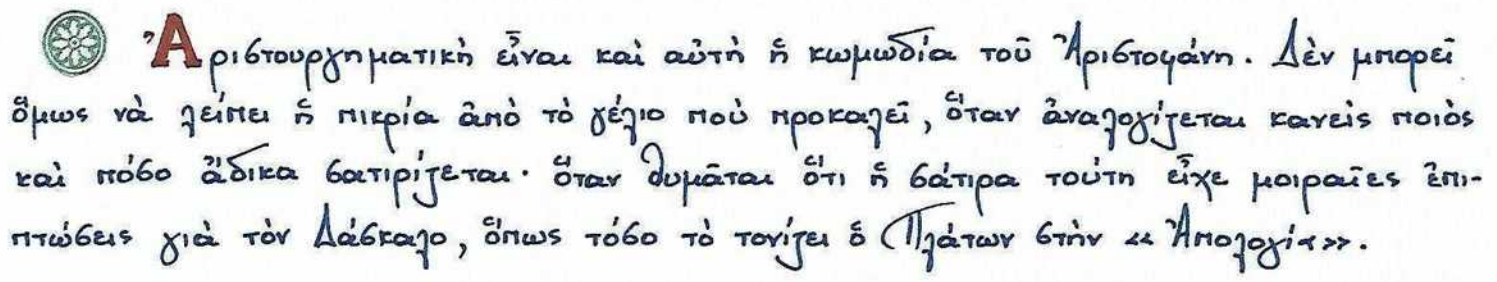 Ἀριστουργηματικὴ εἶναι καὶ αὐτὴ ἡ κωμωδία τοῦ Ἀριστοφάνη. Δὲν μπορεῖ
ὅμως νὰ λείπει ἡ πικρία ἀπὸ τὸ γέλιο ποὺ προκαλεῖ, ὅταν ἀναλογίζεται κανεὶς ποιὸς
καὶ πόσο ἄδικα σατιρίζεται· ὅταν θυμᾶται ὅτι ἡ σάτιρα τούτη εἶχε μοιραῖες ἐπι-
πτώσεις γιὰ τὸν Δάσκαλο, ὅπως τόσο τὸ τονίζει ὁ Πλάτων στὴν «Ἀπολογία».